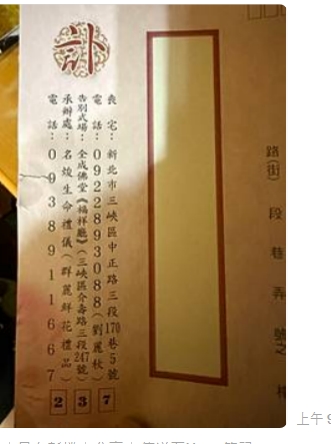 訃
喪宅：新北市三峽區中正路三段170巷5號
電話：0922893088(劉麗秋)
告別式場：全成佛堂《福祥廳》(三峽區介壽路三段247號)
承辦處：名煌生命禮儀(群麗鮮花禮品)
電話：0938911667
237
路(街)
段
巷
弄
號之
樓
上午 9